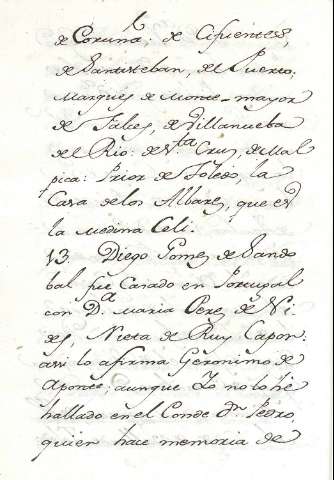 de Coruña; de Cifuentes,
de Santisteban, del Puerto,
Marques de Monte-mayor
de Falces, de Villanueba
del Rio: de Sta. Cruz, de Mal
pica: Prior de Toledo, la
Casa de los Albares, que es
la Medina Celi.
13. Diego Gomez de Sando
bal fue Casado en Portugal
con Da. Maria Perez de Vi
des, Nieta de Ruy Capon:
assi lo afirma Geronimo de
Aponte; aunque Yo no lo hé
hallado en el Conde Dn. Pedro,
quien hace memoria de